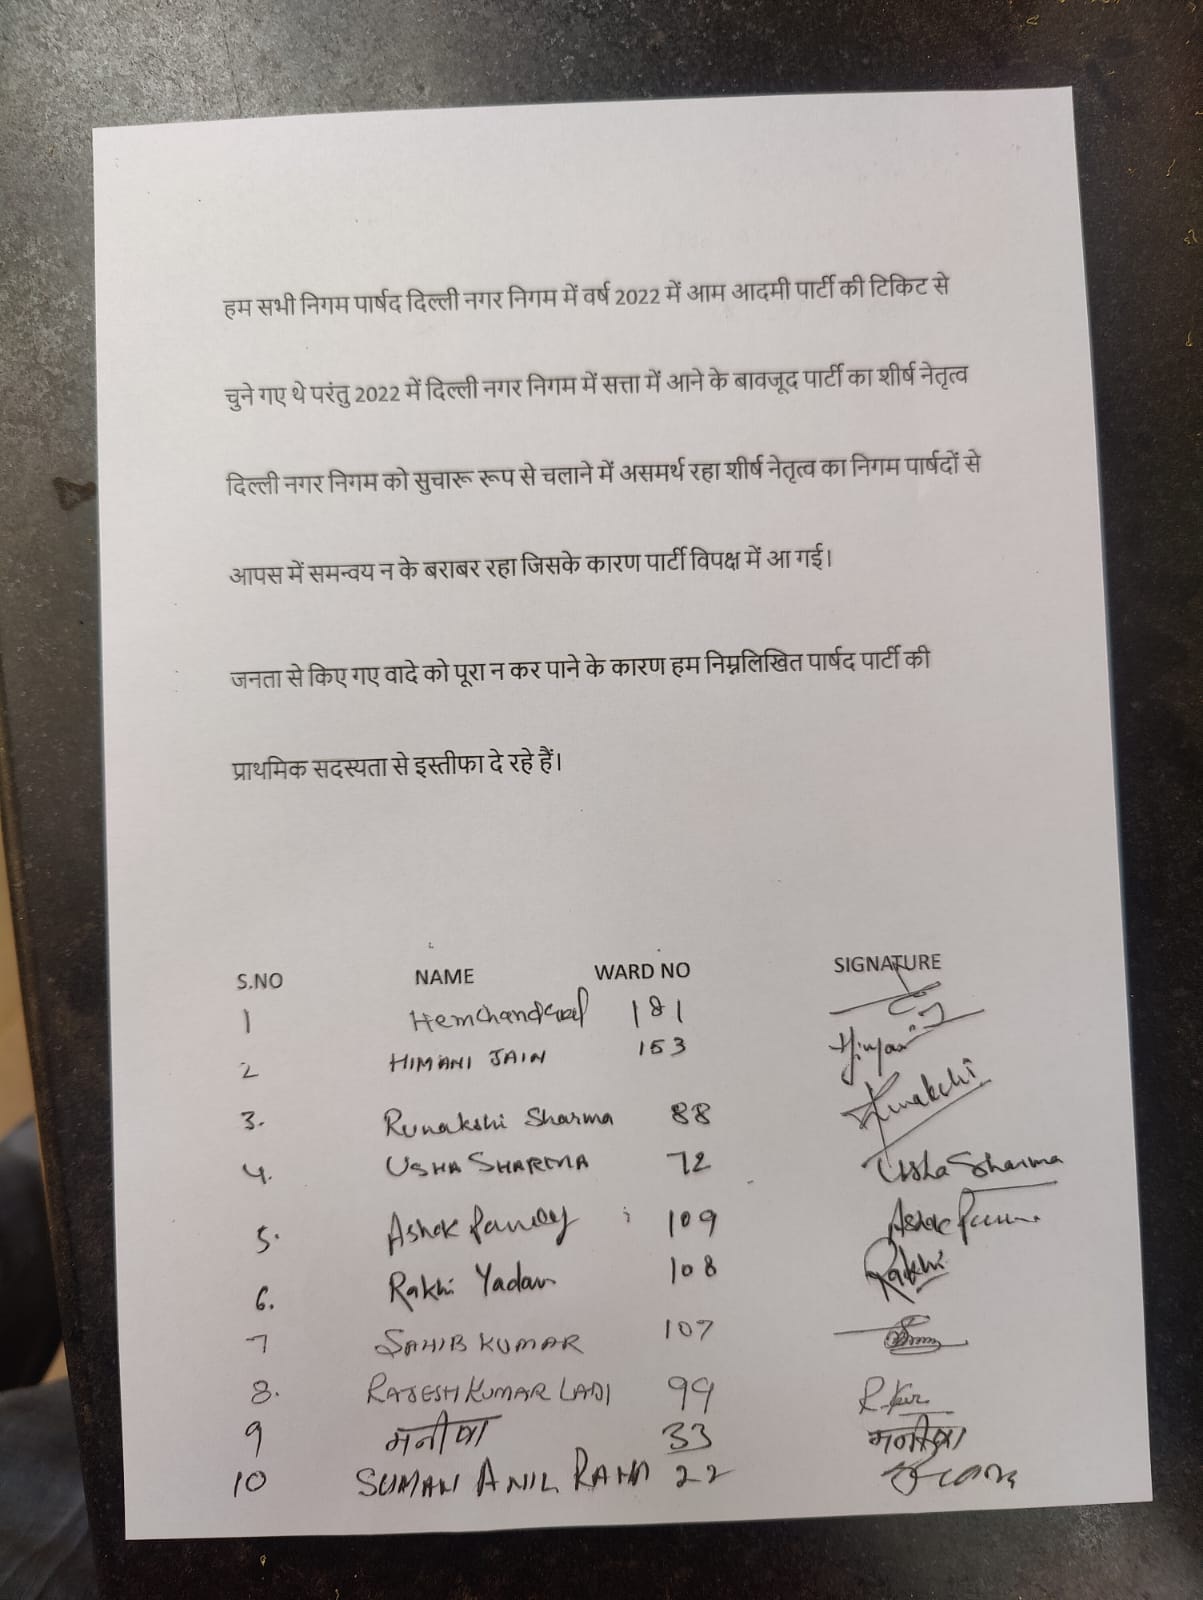 हम सभी निगम पार्षद दिल्ली नगर निगम में वर्ष 2022 में आम आदमी पार्टी की टिकिट से
चुने गए थे परंतु 2022 में दिल्ली नगर निगम में सत्ता में आने के बावजूद पार्टी का शीर्ष नेतृत्व
दिल्ली नगर निगम को सुचारू रूप से चलाने में असमर्थ रहा शीर्ष नेतृत्व का निगम पार्षदों से
आपस में समन्वय न के बराबर रहा जिसके कारण पार्टी विपक्ष में आ गई।
जनता से किए गए वादे को पूरा न कर पाने के कारण हम निम्नलिखित पार्षद पार्टी की
प्राथमिक सदस्यता से इस्तीफा दे रहे हैं।
S.NO NAME WARD NO SIGNATURE
1 181
2 HIMANI JAIN 153
3. Runakshi Sharma 88 Runakshi
4. USHA SHARMA 72 Usha Sharma
5. Ashok 109 Ashok
6. Rakhi Yadav 108 Rakhi
7 SAHIB KUMAR 107
8. RAJESH KUMAR LADI 99
9 मनीषा 33 मनीषा
10 SUMAN ANIL RANA 22